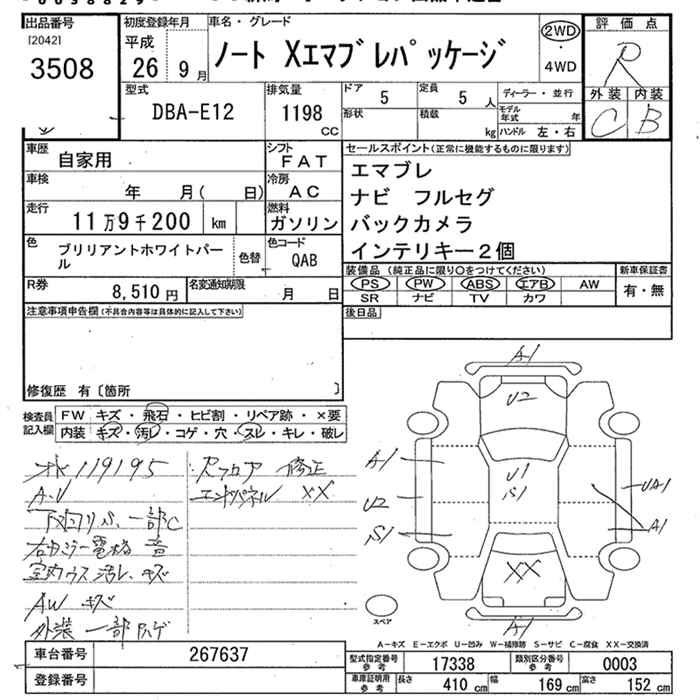 出品番号
I20421
3508
初度登録年月
平成
26 9月
車名・グレード
ノート Xエマブレパッケージ
2WD
・
4WD
評価点
R
外装 内装
C B
型式
DBA-E12
排気量
1198
CC
ドア
5
定員
5 人
形状
積載
kg
ディーラー・並行
モデル
年式 年
ハンドル 左・右
車歴
自家用
シフト
FAT
車検
年 月( 日)
冷房
AC
走行
11万9千200 km
燃料
ガソリン
色
ブリリアントホワイトパール
色替
色コード
QAB
R券
8,510円
名変通知期限
月 日
セールスポイント(正常に機能するものに限ります)
エマブレ
ナビ フルセグ
バックカメラ
インテリキー2個
装備品(純正品に限り〇をつけてください)
PS PW ABS エアB AW
SR ナビ TV カワ
新車保証書
有・無
後日品
注意事項申告欄(不具合内容等は具体的に記入して下さい)
修復歴 有〔箇所 〕
検査員
記入欄
FW キズ・飛石・ヒビ割・リペア跡・×要
内装 キズ・汚レ・コゲ・穴・スレ・キレ・破レ
119195
A.V
下回りサビ 一部C
右カラー電格 音
室内ウス汚レ、キズ
AW キズ
外装 一部ハゲ
Rフロア 修正
エンドパネル XX
A1
U2
A1
U1
S1
U2
S1
UA1
A1
XX
A1
スペア
A-キズ E-エクボ U-凹み W-補修跡 S-サビ C-腐食 XX-交換済
車台番号
267637
登録番号
型式指定番号
参考
17338
類別区分番号
参考
0003
車庫証明用
参考
長さ
410 cm
幅
169 cm
高さ
152 cm